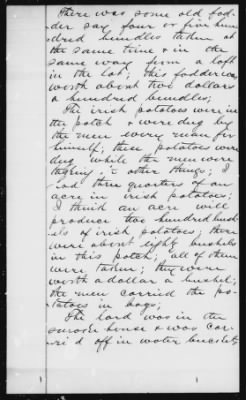 There was some old fod-
der say four or five hun
dred bundles taken at
the same time & in the
same way from a loft
in the lot; this fodder was
worth about two dollars
a hundred bundles;
The irish potatoes were in
the patch & were dug by
the men every man for
himself; these potatoes were
dug while the men were
taking other things; I
had three quarters of an
acre in irish potatoes;
I think an acre will
produce two hundred bush
els of irish potatoes; there
were about eighty bushels
in this patch; all of them
were taken; they were
worth a dollar a bushel;
the men carried the po-
tatoes in bags;
The lard was in the
smoke house & was car-
ried off in water buckets
1
1